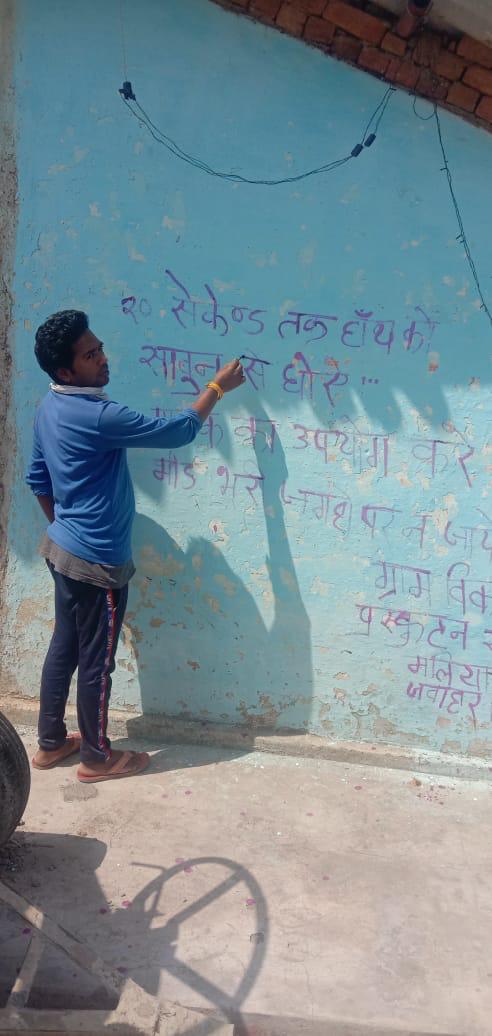 २० सेकेण्ड तक हाँथ को
साबुन से धोऐ...
का उपयोग करे
भीड भरे जगह पर न जाये
ग्राम विक
प्रस्फुटन स
जवाहर